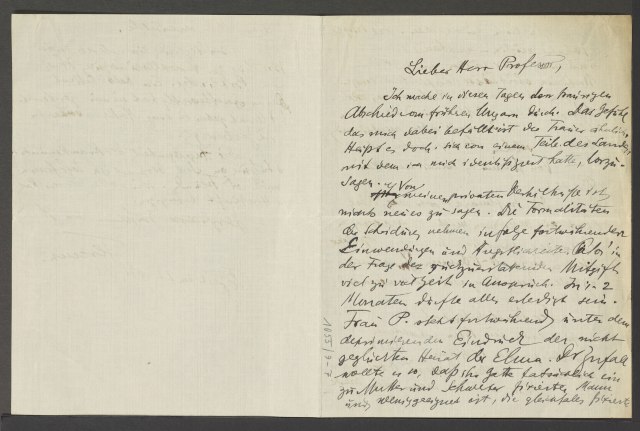 Lieber Herr Professor,
Ich mache in diesen Tagen den traurigen
Abschied vom früheren Ungarn durch. Das Gefühl
das mich dabei befällt ist der Trauer ähnlich.
Heisst es doch, sich von einem Teile des Landes,
mit dem ich mich identifiziert hatte, loszu-
sagen. Von
meinen privaten Verhältnissen ist
nichts neues zu sagen. Die Formalitäten
der Scheidung nehmen infolge fortwährender
Einwendungen und
in der Frage der Mitgift
viel zu viel Zeit in Anspruch. In 1-2
Monaten dürfte alles erledigt sein.
Frau P. steht fortwährend unter dem
deprimierenden Eindruck der nicht
geglückten Heirat der Elma. Der Zufall
wollte es so, dass ihr Gatte tatsächlich ein
zu Mutter und Schwester fixierter Mann
und wenig geeignet ist, die gleichfalls fixierte
1055/9-7